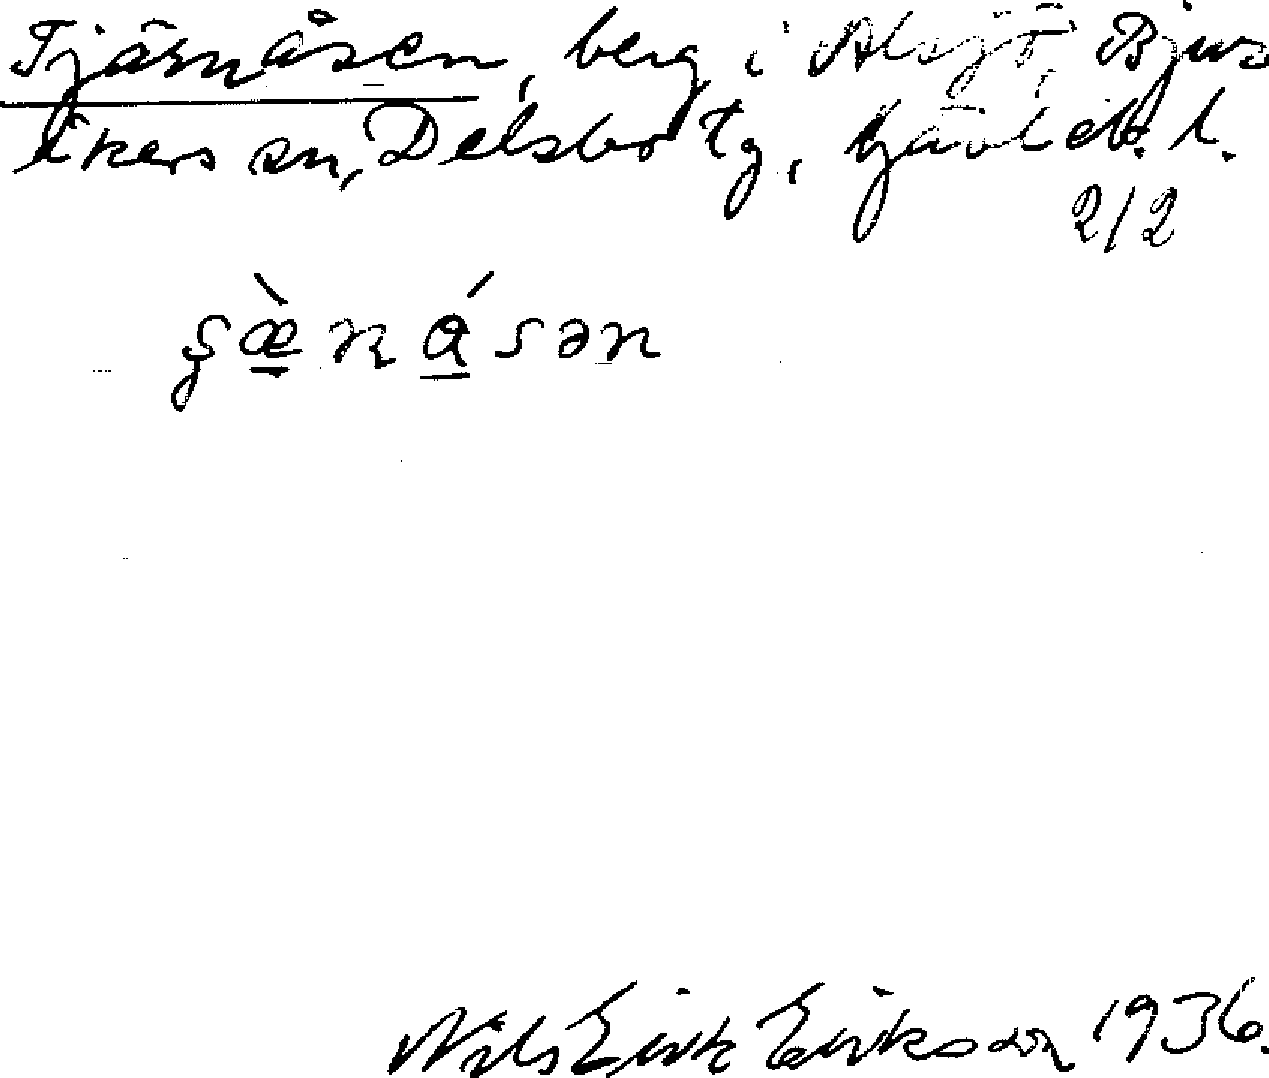 Tjärnåsen, berg i Alsjö, Bjur
åkers sn, Delsbo tg, Gävleb. l.
2/2
Nils Erik Eriksson 1936.